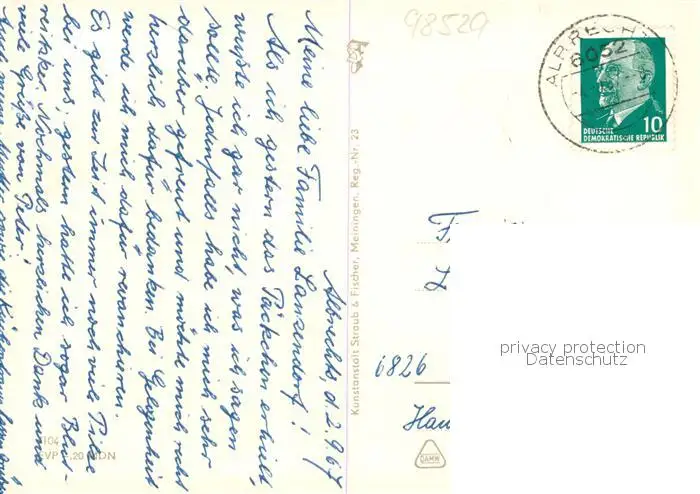 Albrechts, d. 2.9.67
Meine liebe Familie Lanzendorf!
Als ich gestern das Päckchen erhielt,
wußte ich gar nicht, was ich sagen
sollte. Jedenfalls habe ich mich sehr
darüber gefreut und möchte mich recht
herzlich dafür bedanken. Bei Gelegenheit
werde ich mich dafür revanchieren.
Es gibt zur Zeit immer noch viele Pilze
bei uns, gestern hatte ich sogar
Nochmals herzlichen Dank und
viele Grüße von Peter!
104
EVP 20 MDN
Kunstanstalt Straub & Fischer, Meiningen, Reg.-Nr. 23
98529
ALBRECHTS
6052
10
DEUTSCHE
DEMOKRATISCHE REPUBLIK
6826
DAMW
privacy protection
Datenschutz